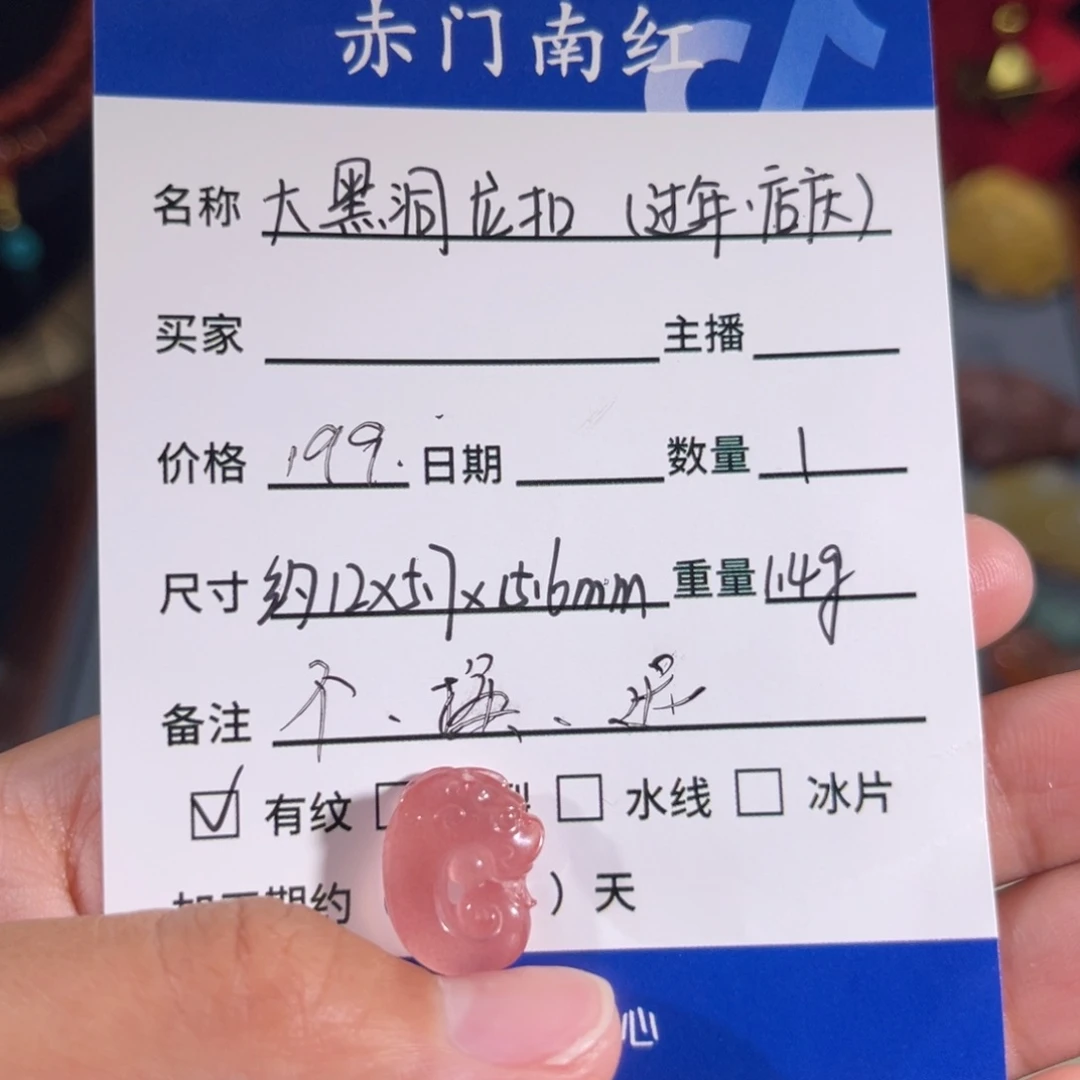 赤门南红
名称 大黑洞龙扣（过年·店庆）
买家 主播
价格 199. 日期 数量 1
尺寸 约12x5.7x15.6mm 重量 1.4g
备注 不、换、
有纹 水线 冰片
）天
心